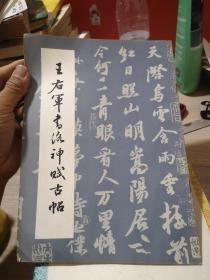 天際烏雲含雨重樓前
紅日照山明嵩陽居士
今何在青眼看人萬里情
王右軍書洛神賦古帖